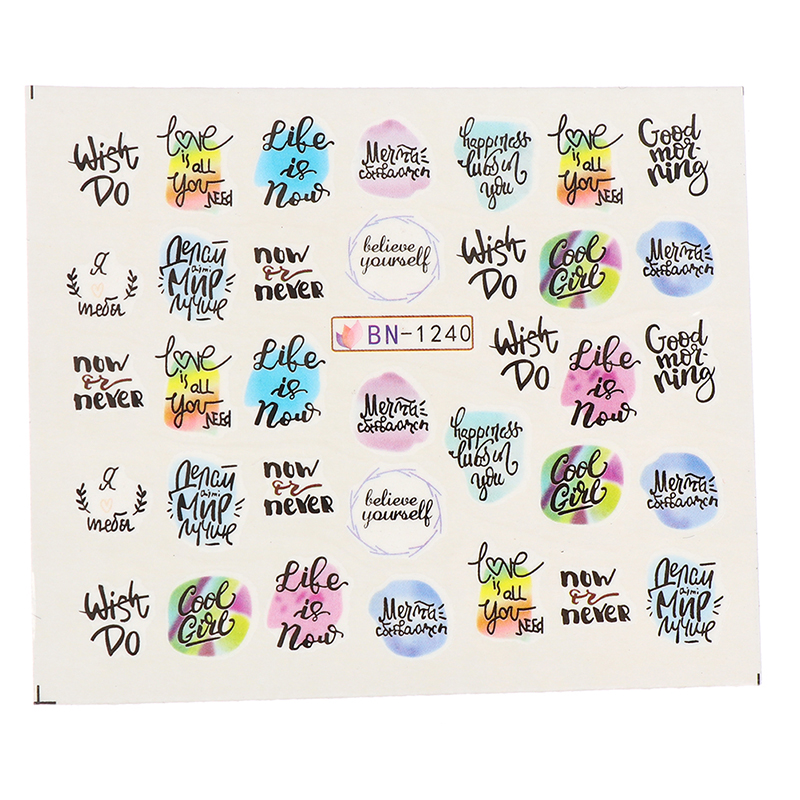 Wish
Do
Love
is all
You
Need
Life
is
Now
Мечты
сбываются
happiness
lives in
you
Love
is all
You
Need
Good
mor-
ning
Я
тебя
Делай
этот
Мир
лучше
now
or
never
believe
yourself
Wish
Do
Cool
Girl
Мечты
сбываются
BN-1240
now
or
never
Love
is all
You
Need
Life
is
Now
Мечты
сбываются
Wish
Do
Life
is
Now
Good
mor-
ning
happiness
lives in
you
Я
тебя
Делай
этот
Мир
лучше
now
or
never
believe
yourself
Cool
Girl
Мечты
сбываются
Wish
Do
Cool
Girl
Life
is
Now
Мечты
сбываются
Love
is all
You
Need
now
or
never
Делай
этот
Мир
лучше